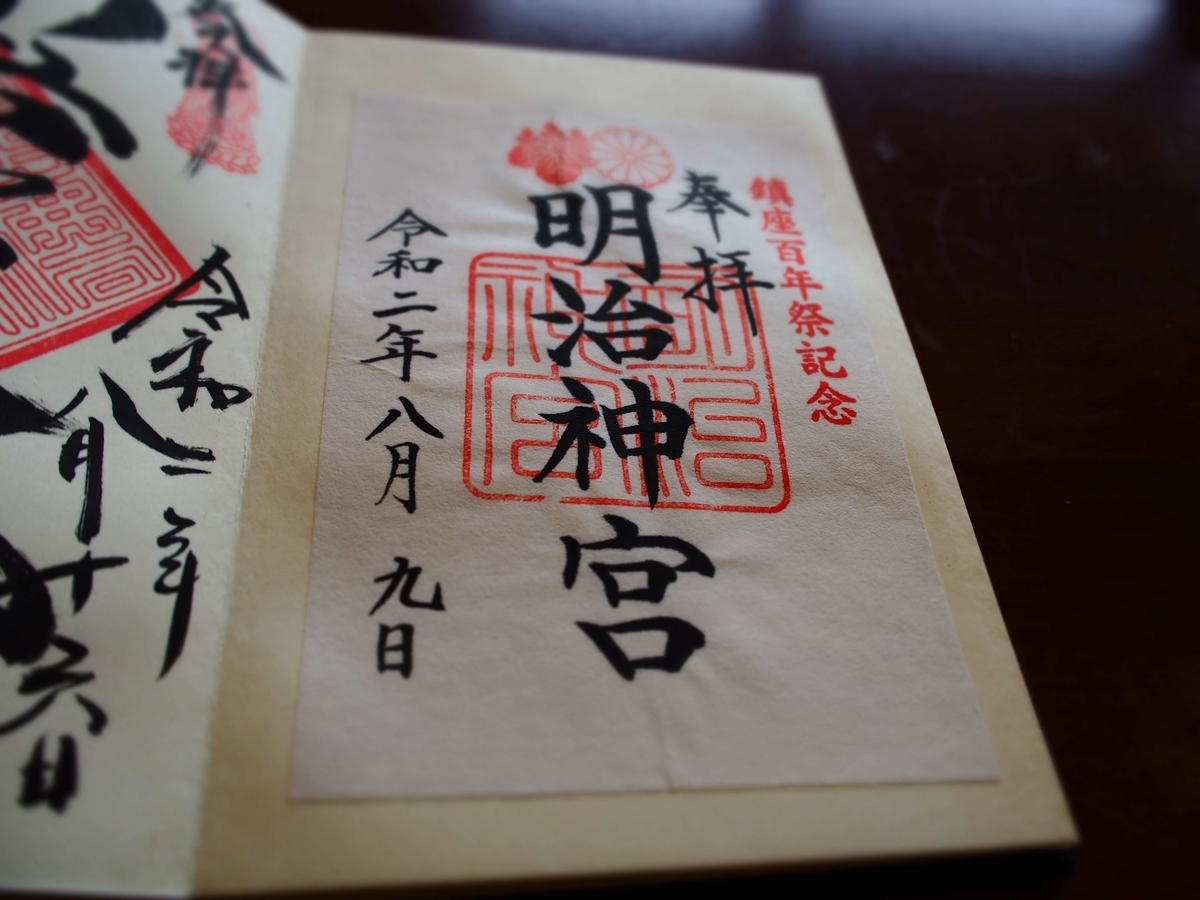 鎮座百年祭記念
奉拝
明治神宮
令和二年八月九日
奉拝
令和二年
八月十六日